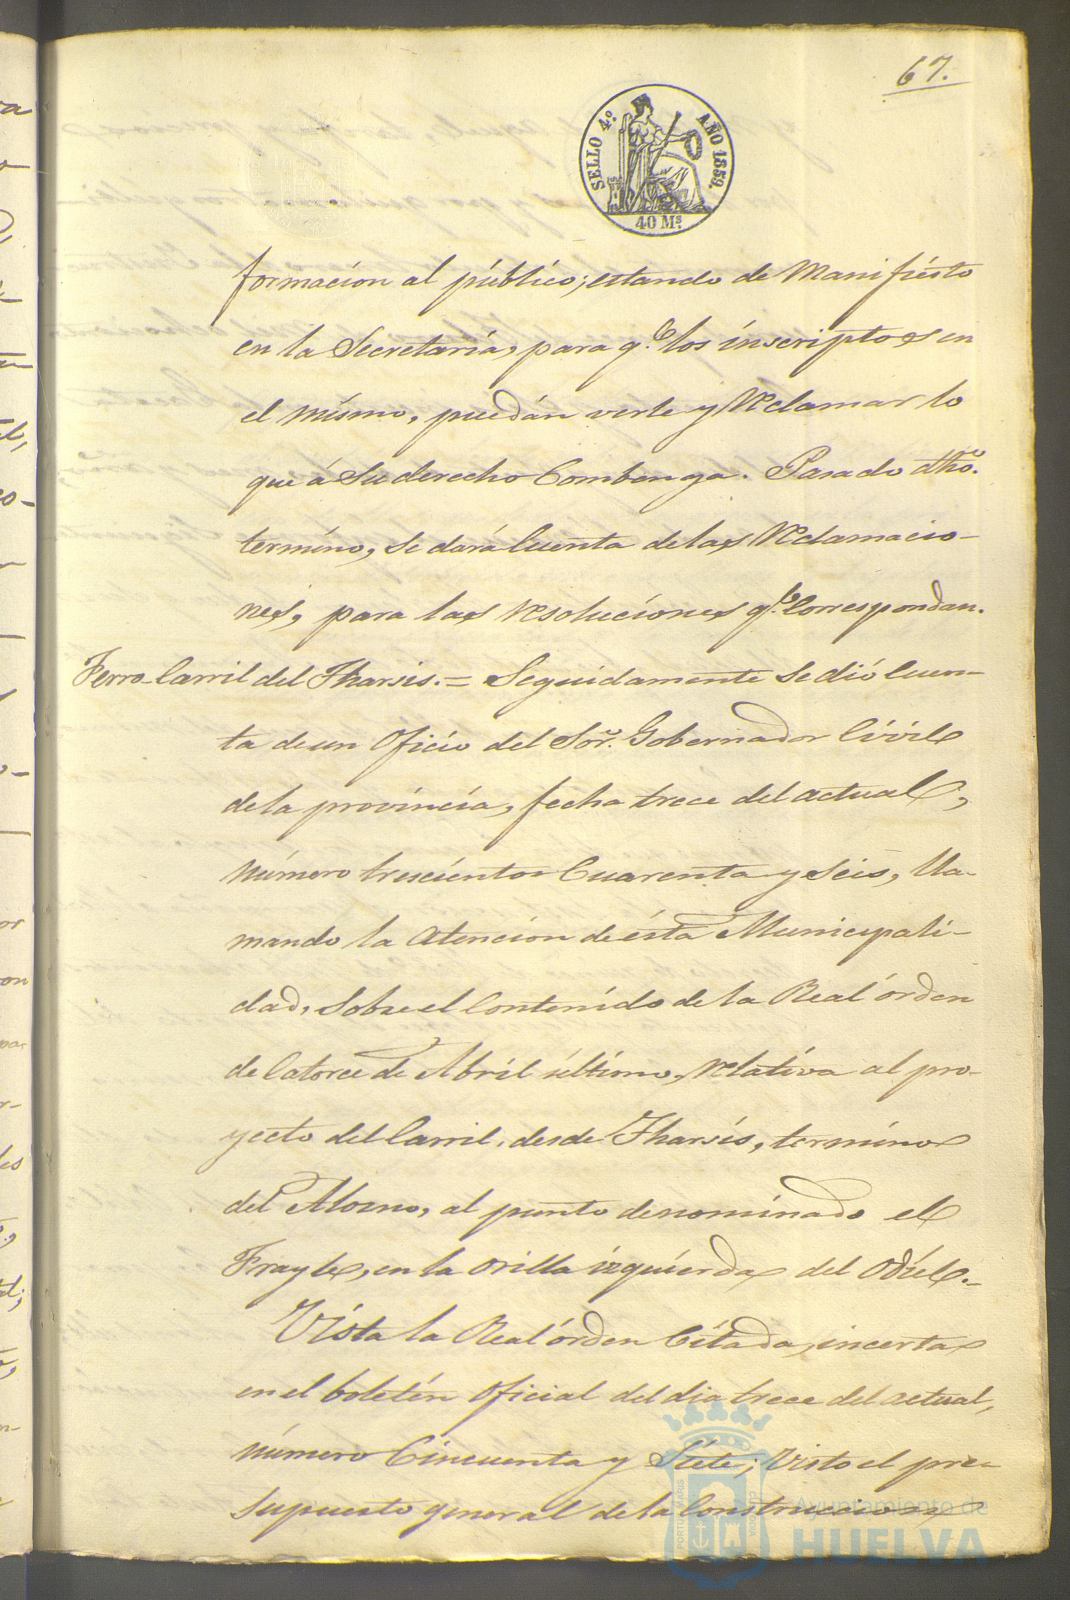 67.
SELLO 4.º AÑO 1859.
40 Ms.
formacion al público; estando de Manifiésto
en la Secretaría, para q.e los inscriptos en
el mismo, puedán verle y Reclamar lo
que á Su derecho Combenga. Pasado dho.
termíno, Se dará Cuenta de las Reclamacio-
nes, para las Resoluciones q.e Correspondan.
Ferro-Carril del Tharsis. = Seguidamente Se dió Cuen-
ta de un Oficio del Sor. Gobernador Civil
de la provincia, fecha trece del actual,
Número trescientos Cuarenta y Seis, lla-
mando la Atencion de ésta Municipali-
dad, Sobre el Contenido de la Real órden
de Catorce de Abril último, Relativa al pro-
yecto del Carril, desde Tharsis, termíno
del Alosno, al punto denominado el
Frayle, en la Orilla izquierda del Odiel.-
Vista la Real órden Citada, incerta
en el boletín Oficial del dia trece del actual,
Número Cincuenta y Siete; Visto el pre-
Supuesto general de la Construccion
Ayuntamiento de
HUELVA